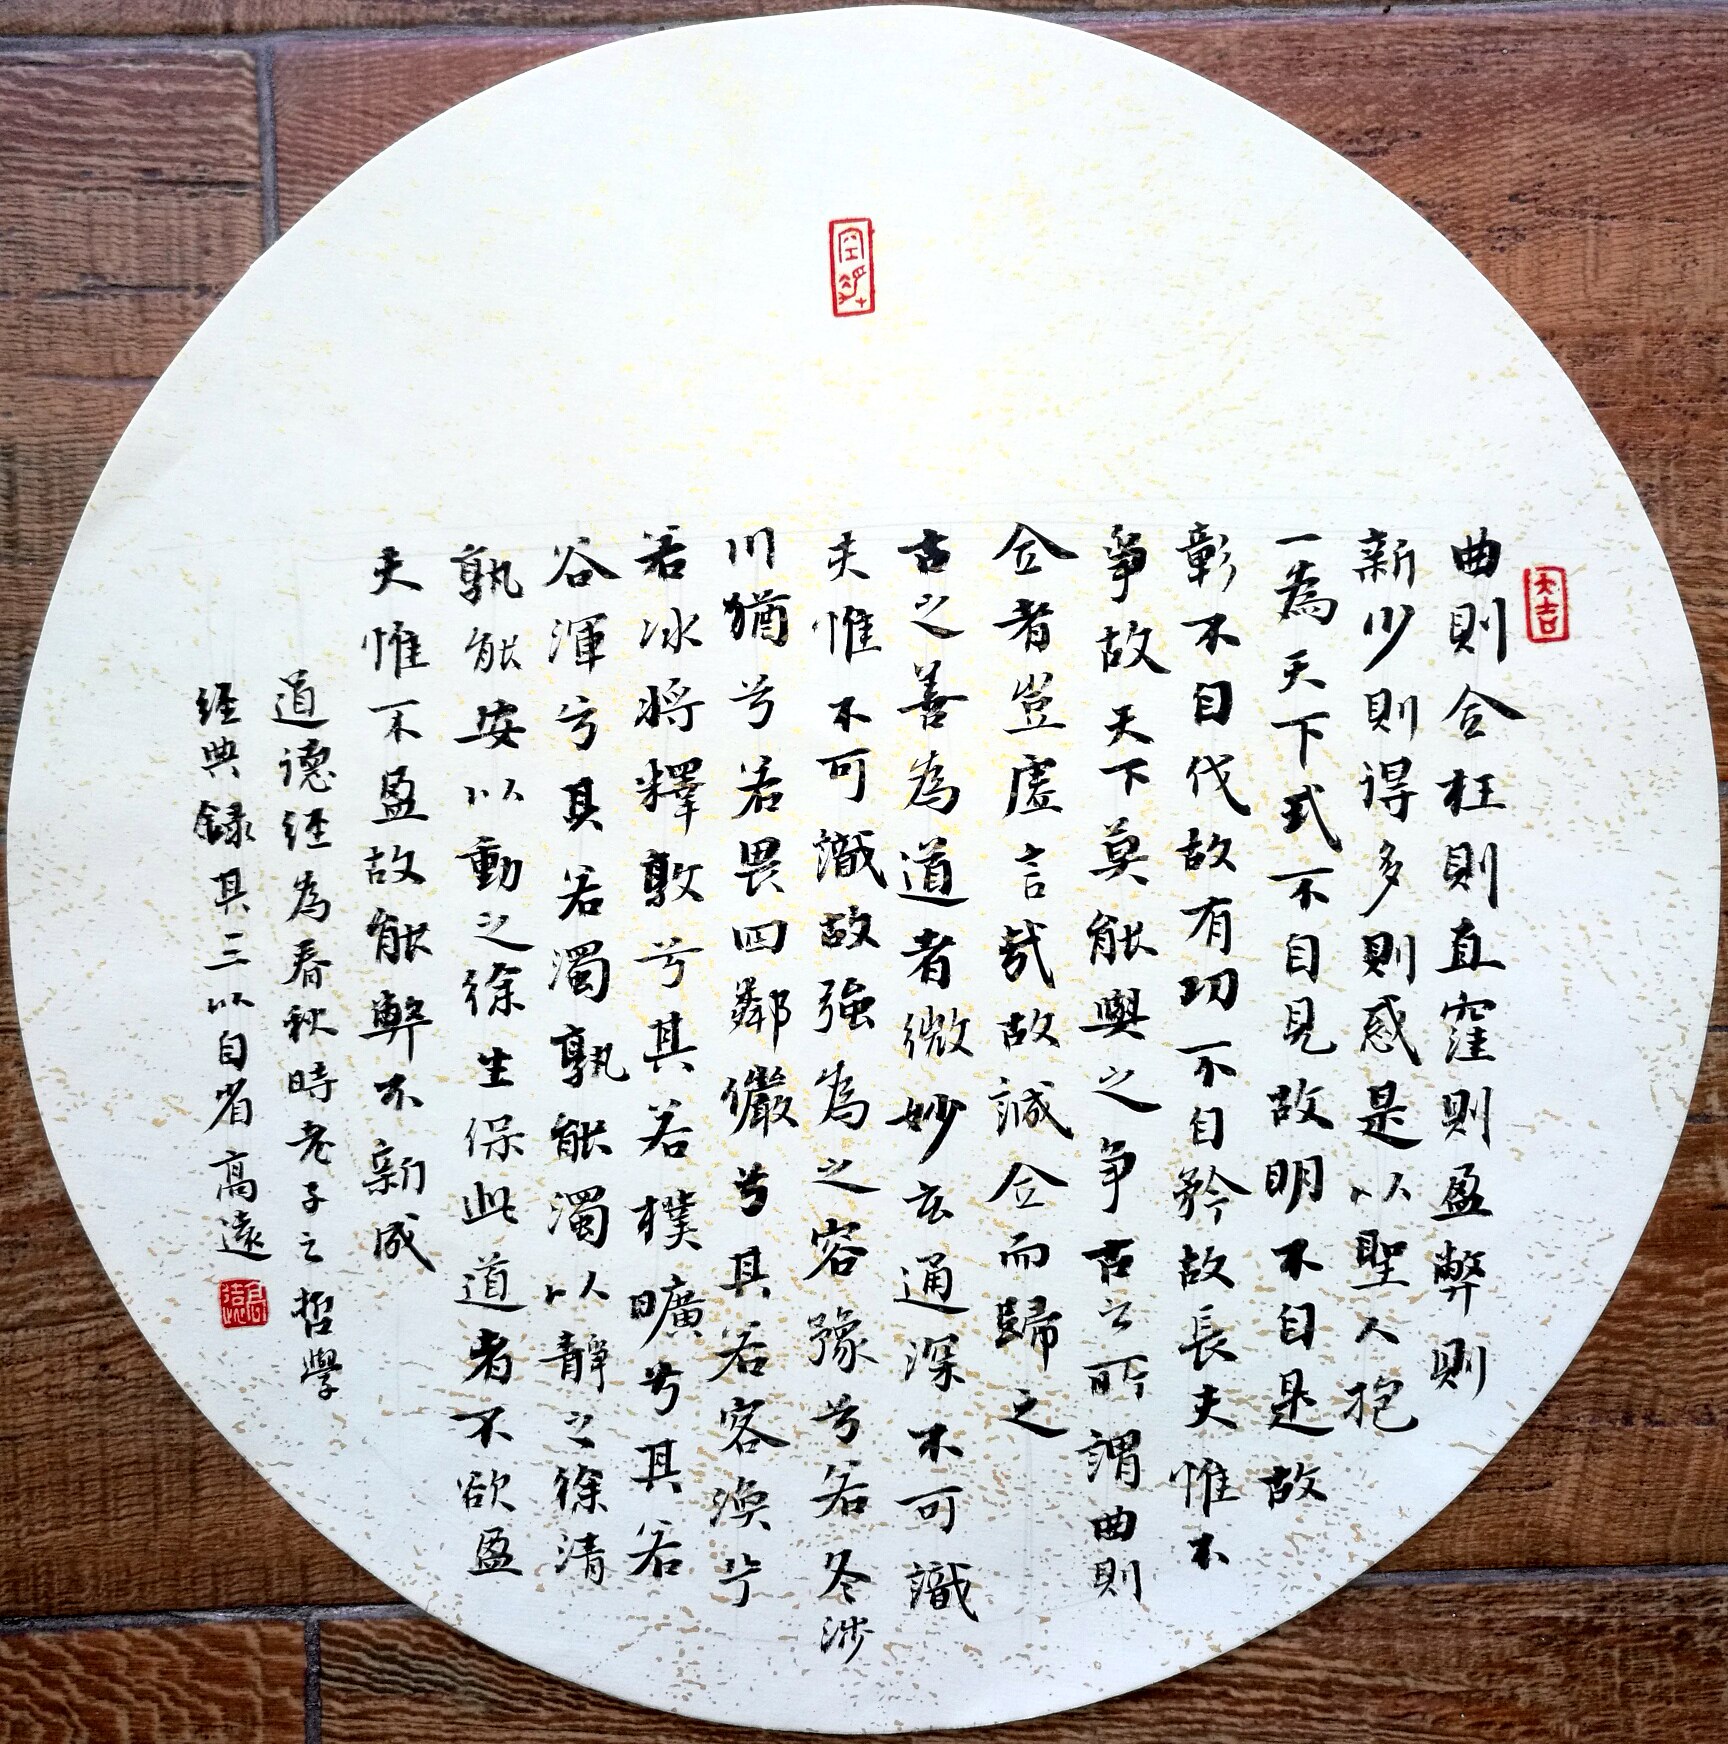 大吉
曲則全枉則直窪則盈弊則
新少則得多則惑是以聖人抱
一為天下式不自見故明不自是故
彰不自伐故有功不自矜故長夫惟不
爭故天下莫能與之爭古之所謂曲則
全者豈虛言哉故誠全而歸之
古之善為道者微妙玄通深不可識
夫惟不可識故強為之容豫兮若冬涉
川猶兮若畏四鄰儼兮其若客渙兮
若冰將釋敦兮其若樸曠兮其若
谷渾兮其若濁孰能濁以靜之徐清
孰能安以動之徐生保此道者不欲盈
夫惟不盈故能弊不新成
道德經為春秋時老子之哲學
經典錄其三以自省高遠
高遠